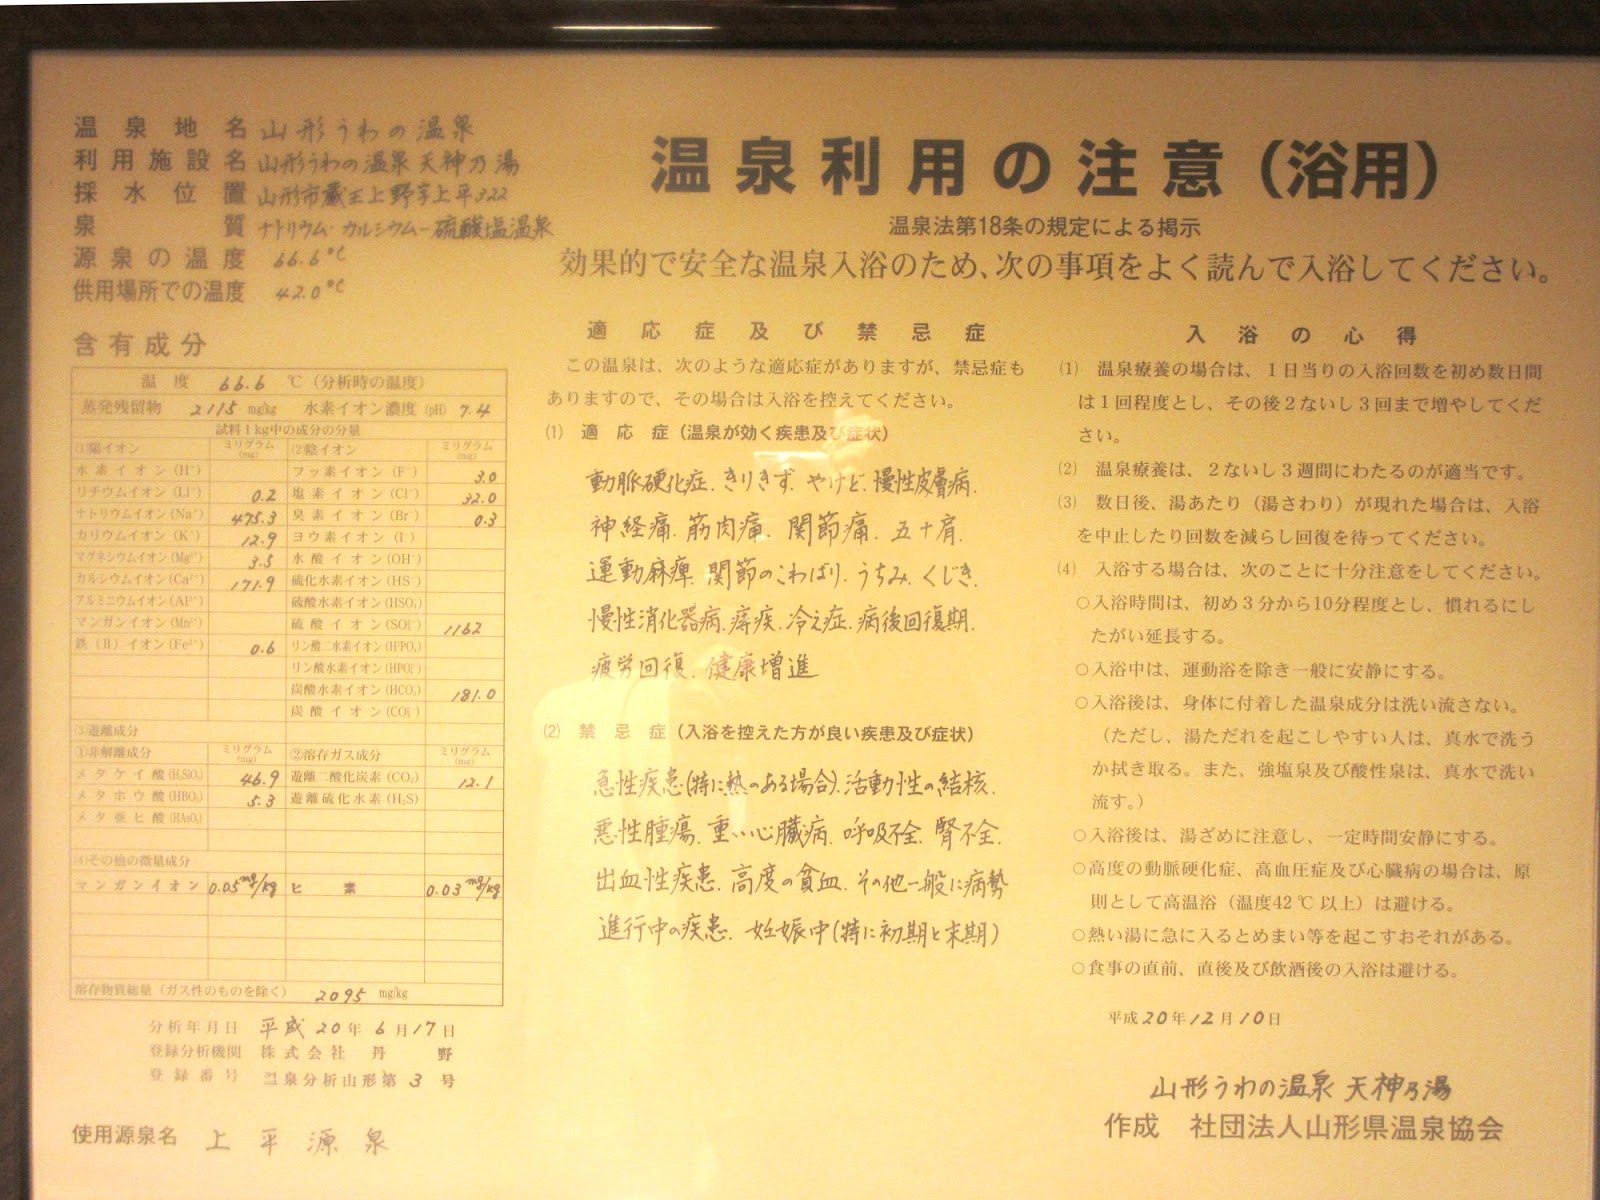 温泉地名 山形うわの温泉
利用施設名 山形うわの温泉 天神乃湯
採水位置 山形市蔵王上野字上平322
泉質 ナトリウム・カルシウム-硫酸塩温泉
源泉の温度 66.6℃
供用場所での温度 42.0℃
含有成分
温度 66.6 ℃(分析時の温度)
蒸発残留物 2115 mg/kg 水素イオン濃度(pH) 7.4
試料1kg中の成分の分量
(1)陽イオン ミリグラム(mg) (2)陰イオン ミリグラム(mg)
水素イオン(H⁺) フッ素イオン(F⁻) 3.0
リチウムイオン(Li⁺) 0.2 塩素イオン(Cl⁻) 32.0
ナトリウムイオン(Na⁺) 475.3 臭素イオン(Br⁻) 0.3
カリウムイオン(K⁺) 12.9 ヨウ素イオン(I⁻)
マグネシウムイオン(Mg²⁺) 3.5 水酸イオン(OH⁻)
カルシウムイオン(Ca²⁺) 171.9 硫化水素イオン(HS⁻)
アルミニウムイオン(Al³⁺) 硫酸水素イオン(HSO₄⁻)
マンガンイオン(Mn²⁺) 硫酸イオン(SO₄²⁻) 1162
鉄(Ⅱ)イオン(Fe²⁺) 0.6 リン酸二水素イオン(H₂PO₄⁻)
リン酸水素イオン(HPO₄²⁻)
炭酸水素イオン(HCO₃⁻) 181.0
炭酸イオン(CO₃²⁻)
(3)遊離成分
①非解離成分 ミリグラム(mg) ②溶存ガス成分 ミリグラム(mg)
メタケイ酸(H₂SiO₃) 46.9 遊離二酸化炭素(CO₂) 12.1
メタホウ酸(HBO₂) 5.3 遊離硫化水素(H₂S)
メタ亜ヒ酸(HAsO₂)
(4)その他の微量成分
マンガンイオン 0.05mg/kg ヒ素 0.03mg/kg
溶存物質総量(ガス性のものを除く) 2095 mg/kg
分析年月日 平成20年6月17日
登録分析機関 株式会社 丹野
登録番号 温泉分析山形第3号
使用源泉名 上平源泉
温泉利用の注意(浴用)
温泉法第18条の規定による掲示
効果的で安全な温泉入浴のため、次の事項をよく読んで入浴してください。
適応症及び禁忌症
この温泉は、次のような適応症がありますが、禁忌症も
ありますので、その場合は入浴を控えてください。
(1) 適応症(温泉が効く疾患及び症状)
動脈硬化症.きりきず.やけど.慢性皮膚病.
神経痛.筋肉痛.関節痛.五十肩.
運動麻痺.関節のこわばり.うちみ.くじき.
慢性消化器病.痔疾.冷え症.病後回復期.
疲労回復.健康増進
(2) 禁忌症(入浴を控えた方が良い疾患及び症状)
急性疾患(特に熱のある場合).活動性の結核.
悪性腫瘍.重い心臓病.呼吸不全.腎不全.
出血性疾患.高度の貧血.その他一般に病勢
進行中の疾患.妊娠中(特に初期と末期)
入浴の心得
(1) 温泉療養の場合は、1日当りの入浴回数を初め数日間
は1回程度とし、その後2ないし3回まで増やしてくだ
さい。
(2) 温泉療養は、2ないし3週間にわたるのが適当です。
(3) 数日後、湯あたり(湯さわり)が現れた場合は、入浴
を中止したり回数を減らし回復を待ってください。
(4) 入浴する場合は、次のことに十分注意をしてください。
○入浴時間は、初め3分から10分程度とし、慣れるにし
たがい延長する。
○入浴中は、運動浴を除き一般に安静にする。
○入浴後は、身体に付着した温泉成分は洗い流さない。
(ただし、湯ただれを起こしやすい人は、真水で洗う
か拭き取る。また、強塩泉及び酸性泉は、真水で洗い
流す。)
○入浴後は、湯ざめに注意し、一定時間安静にする。
○高度の動脈硬化症、高血圧症及び心臓病の場合は、原
則として高温浴(温度42℃以上)は避ける。
○熱い湯に急に入るとめまい等を起こすおそれがある。
○食事の直前、直後及び飲酒後の入浴は避ける。
平成20年12月10日
山形うわの温泉 天神乃湯
作成 社団法人山形県温泉協会